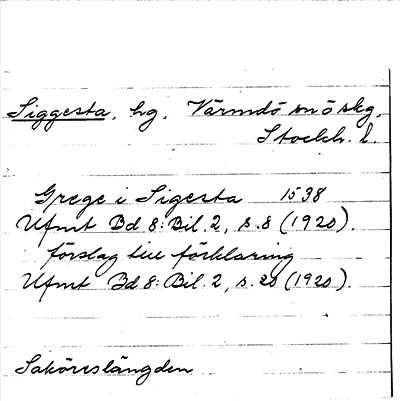 Siggesta, hg, Värmdö sn ö skg,
Stockh. l.
Grege i Sigesta 1538
Ufmt Bd 8: Bil. 2, s. 8 (1920).
förslag till förklaring
Ufmt Bd 8: Bil. 2, s. 20 (1920).
Saköreslängden